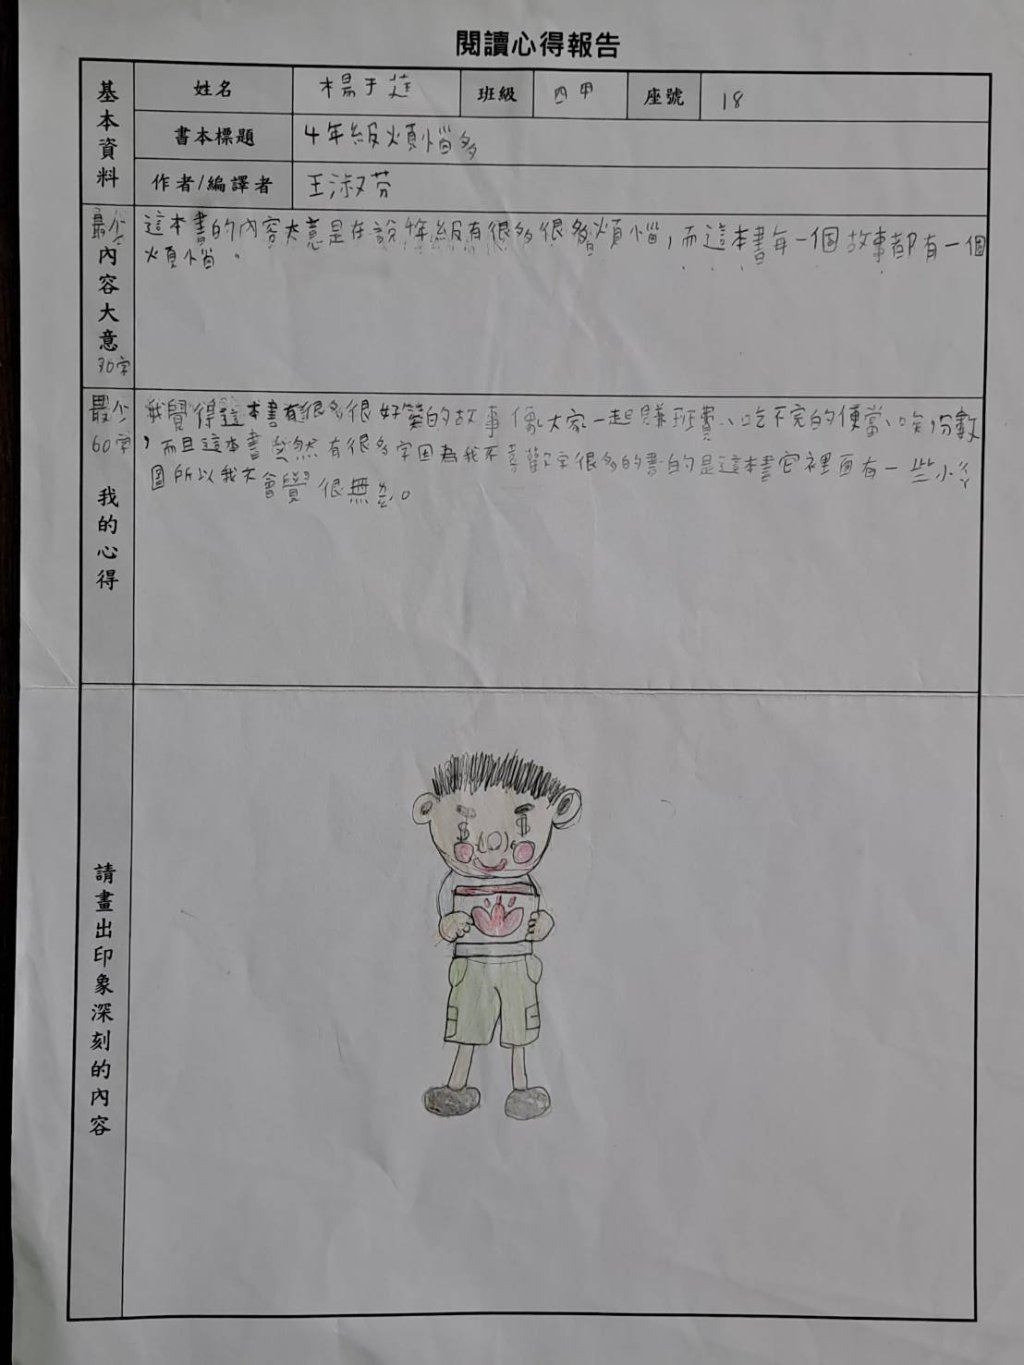 閱讀心得報告
基本資料
姓名 楊于莛 班級 四甲 座號 18
書本標題 4年級煩惱多
作者/編譯者 王淑芬
最少 內容大意 30字
這本書的內容大意是在說4年級有很多很多煩惱,而這本書每一個故事都有一個
煩惱。
最少 60字 我的心得
我覺得這本書有很多很好笑的故事像大家一起賺班費、吃不完的便當、唉,分數
,而且這本書雖然有很多字因為我不喜歡字很多的書的是這本書它裡面有一些小
圖所以我不會覺很無
請畫出印象深刻的內容